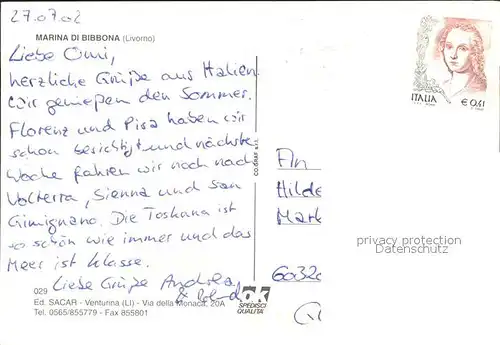 27.07.02
MARINA DI BIBBONA (Livorno)
Liebe Omi,
herzliche Grüße aus Italien
Wir genießen den Sommer.
Florenz und Pisa haben wir
schon besichtigt und nächste
Woche fahren wir noch nach
Volterra, Sienna und San
Gimignano. Die Toskana ist
so schön wie immer und das
Meer ist klasse.
Liebe Grüße Andrea
&
029
Ed. SACAR - Venturina (LI) - Via della Monaca, 20A
Tel. 0565/855779 - Fax 855801
CO.GRAF s.r.l.
OK
SPEDISCI
QUALITÀ
ITALIA
€ 0,41
An
Hilde
Mark
6032
privacy protection
Datenschutz